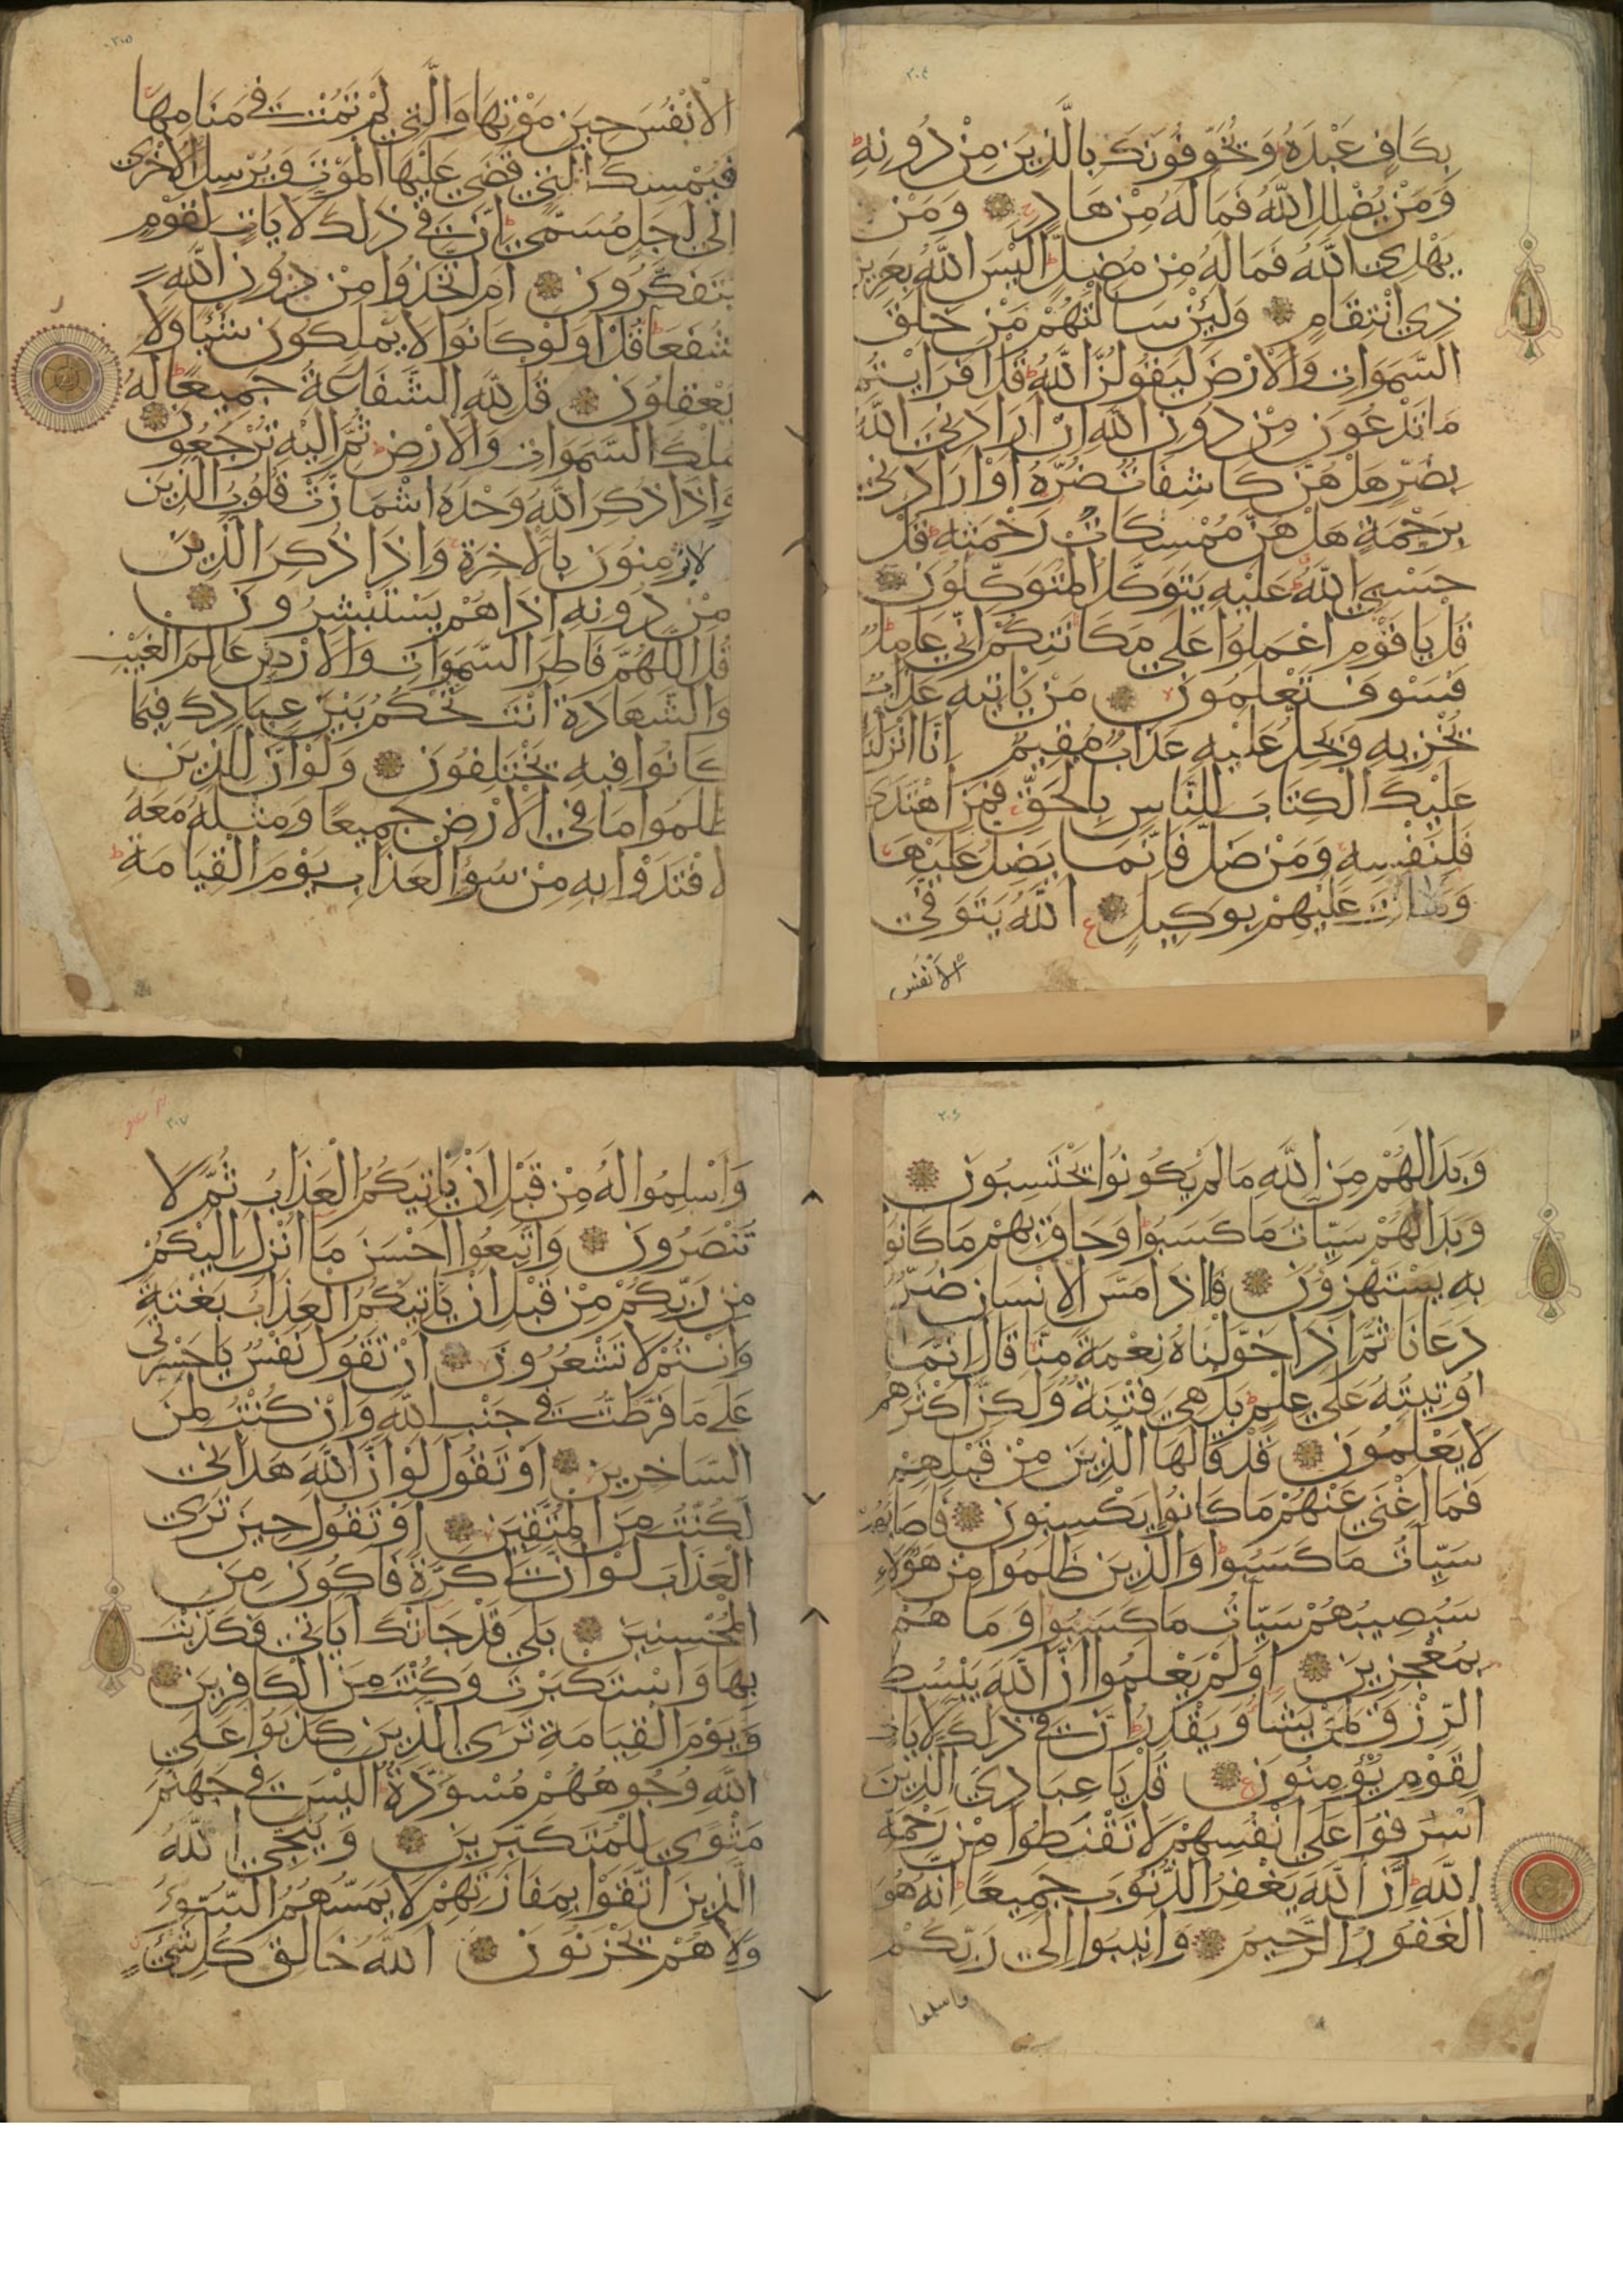 ٢٠٤
بِكَافٍ عَبْدَهُ وَيُخَوِّفُونَكَ بِالَّذِينَ مِنْ دُونِهِ ط
وَمَنْ يُضْلِلِ اللَّهُ فَمَا لَهُ مِنْ هَادٍ وَمَنْ
يَهْدِي اللَّهُ فَمَا لَهُ مِنْ مُضِلٍّ ط اَلَيْسَ اللَّهُ بِعَزِيزٍ
ذِي انْتِقَامٍ وَلَئِنْ سَاَلْتَهُمْ مَنْ خَلَقَ
السَّمَوَاتِ وَالْاَرْضَ لَيَقُولُنَّ اللَّهُ ط قُلْ اَفَرَاَيْتُمْ
مَا تَدْعُونَ مِنْ دُونِ اللَّهِ اِنْ اَرَادَنِيَ اللَّهُ
بِضُرٍّ هَلْ هُنَّ كَاشِفَاتُ ضُرِّهِ اَوْ اَرَادَنِي
بِرَحْمَةٍ هَلْ هُنَّ مُمْسِكَاتُ رَحْمَتِهِ ط قُلْ
حَسْبِيَ اللَّهُ ط عَلَيْهِ يَتَوَكَّلُ الْمُتَوَكِّلُونَ
قُلْ يَا قَوْمِ اعْمَلُوا عَلَى مَكَانَتِكُمْ اِنِّي عَامِلٌ
فَسَوْفَ تَعْلَمُونَ لا مَنْ يَاْتِيهِ عَذَابٌ
يُخْزِيهِ وَيَحِلُّ عَلَيْهِ عَذَابٌ مُقِيمٌ اِنَّا اَنْزَلْنَا
عَلَيْكَ الْكِتَابَ لِلنَّاسِ بِالْحَقِّ فَمَنِ اهْتَدَى
فَلِنَفْسِهِ وَمَنْ ضَلَّ فَاِنَّمَا يَضِلُّ عَلَيْهَا
وَمَا اَنْتَ عَلَيْهِمْ بِوَكِيلٍ ع اَللَّهُ يَتَوَفَّى
الْاَنْفُسَ
٢٠٥
الْاَنْفُسَ حِينَ مَوْتِهَا وَالَّتِي لَمْ تَمُتْ فِي مَنَامِهَا
فَيُمْسِكُ الَّتِي قَضَى عَلَيْهَا الْمَوْتَ وَيُرْسِلُ الْاُخْرَى
اِلَى اَجَلٍ مُسَمًّى ط اِنَّ فِي ذَلِكَ لَآيَاتٍ لِقَوْمٍ
يَتَفَكَّرُونَ اَمِ اتَّخَذُوا مِنْ دُونِ اللَّهِ
شُفَعَا ط قُلْ اَوَلَوْ كَانُوا لَا يَمْلِكُونَ شَيْئًا وَلَا
يَعْقِلُونَ قُلْ لِلَّهِ الشَّفَاعَةُ جَمِيعًا ط لَهُ
مُلْكُ السَّمَوَاتِ وَالْاَرْضِ ط ثُمَّ اِلَيْهِ تُرْجَعُونَ
وَاِذَا ذُكِرَ اللَّهُ وَحْدَهُ اشْمَاَزَّتْ قُلُوبُ الَّذِينَ
لَا يُؤْمِنُونَ بِالْآخِرَةِ وَاِذَا ذُكِرَ الَّذِينَ
مِنْ دُونِهِ اِذَا هُمْ يَسْتَبْشِرُونَ
قُلِ اللَّهُمَّ فَاطِرَ السَّمَوَاتِ وَالْاَرْضِ عَالِمَ الْغَيْبِ
وَالشَّهَادَةِ اَنْتَ تَحْكُمُ بَيْنَ عِبَادِكَ فِيمَا
كَانُوا فِيهِ يَخْتَلِفُونَ وَلَوْ اَنَّ لِلَّذِينَ
ظَلَمُوا مَا فِي الْاَرْضِ جَمِيعًا وَمِثْلَهُ مَعَهُ
لَافْتَدَوْا بِهِ مِنْ سُوءِ الْعَذَابِ يَوْمَ الْقِيَامَةِ ط
٢٠٦
وَبَدَا لَهُمْ مِنَ اللَّهِ مَا لَمْ يَكُونُوا يَحْتَسِبُونَ
وَبَدَا لَهُمْ سَيِّآتُ مَا كَسَبُوا وَحَاقَ بِهِمْ مَا كَانُوا
بِهِ يَسْتَهْزِؤُنَ فَاِذَا مَسَّ الْاِنْسَانَ ضُرٌّ
دَعَانَا ثُمَّ اِذَا خَوَّلْنَاهُ نِعْمَةً مِنَّا قَالَ اِنَّمَا
اُوتِيتُهُ عَلَى عِلْمٍ ط بَلْ هِيَ فِتْنَةٌ وَلَكِنَّ اَكْثَرَهُمْ
لَا يَعْلَمُونَ قَدْ قَالَهَا الَّذِينَ مِنْ قَبْلِهِمْ
فَمَا اَغْنَى عَنْهُمْ مَا كَانُوا يَكْسِبُونَ فَاَصَابَهُمْ
سَيِّآتُ مَا كَسَبُوا ط وَالَّذِينَ ظَلَمُوا مِنْ هَؤُلَاءِ
سَيُصِيبُهُمْ سَيِّآتُ مَا كَسَبُوا وَمَا هُمْ
بِمُعْجِزِينَ اَوَلَمْ يَعْلَمُوا اَنَّ اللَّهَ يَبْسُطُ
الرِّزْقَ لِمَنْ يَشَا وَيَقْدِرُ ط اِنَّ فِي ذَلِكَ لَآيَاتٍ
لِقَوْمٍ يُؤْمِنُونَ ع قُلْ يَا عِبَادِيَ الَّذِينَ
اَسْرَفُوا عَلَى اَنْفُسِهِمْ لَا تَقْنَطُوا مِنْ رَحْمَةِ
اللَّهِ ط اِنَّ اللَّهَ يَغْفِرُ الذُّنُوبَ جَمِيعًا ط اِنَّهُ هُوَ
الْغَفُورُ الرَّحِيمُ وَاَنِيبُوا اِلَى رَبِّكُمْ
واسلموا
٢٠٧
وَاَسْلِمُوا لَهُ مِنْ قَبْلِ اَنْ يَاْتِيَكُمُ الْعَذَابُ ثُمَّ لَا
تُنْصَرُونَ وَاتَّبِعُوا اَحْسَنَ مَا اُنْزِلَ اِلَيْكُمْ
مِنْ رَبِّكُمْ مِنْ قَبْلِ اَنْ يَاْتِيَكُمُ الْعَذَابُ بَغْتَةً
وَاَنْتُمْ لَا تَشْعُرُونَ لا اَنْ تَقُولَ نَفْسٌ يَا حَسْرَتَى
عَلَى مَا فَرَّطْتُ فِي جَنْبِ اللَّهِ وَاِنْ كُنْتُ لَمِنَ
السَّاخِرِينَ اَوْ تَقُولَ لَوْ اَنَّ اللَّهَ هَدَانِي
لَكُنْتُ مِنَ الْمُتَّقِينَ اَوْ تَقُولَ حِينَ تَرَى
الْعَذَابَ لَوْ اَنَّ لِي كَرَّةً فَاَكُونَ مِنَ
الْمُحْسِنِينَ بَلَى قَدْ جَاتْكَ آيَاتِي فَكَذَّبْتَ
بِهَا وَاسْتَكْبَرْتَ وَكُنْتَ مِنَ الْكَافِرِينَ
وَيَوْمَ الْقِيَامَةِ تَرَى الَّذِينَ كَذَبُوا عَلَى
اللَّهِ وُجُوهُهُمْ مُسْوَدَّةٌ ط اَلَيْسَ فِي جَهَنَّمَ
مَثْوًى لِلْمُتَكَبِّرِينَ وَيُنَجِّي اللَّهُ
الَّذِينَ اتَّقَوْا بِمَفَازَتِهِمْ لَا يَمَسُّهُمُ السُّوءُ
وَلَا هُمْ يَحْزَنُونَ اَللَّهُ خَالِقُ كُلِّ شَيْءٍ